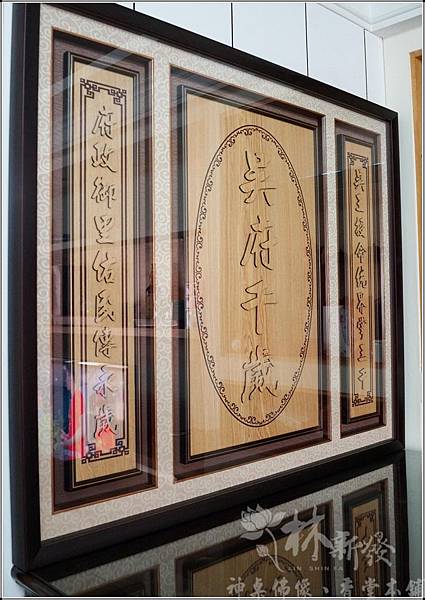 吳王命佑三千
吳府千歲
府政御里佑民傳永歲
林新發
LIN SHIN FA
神桌佛像、香堂本舖